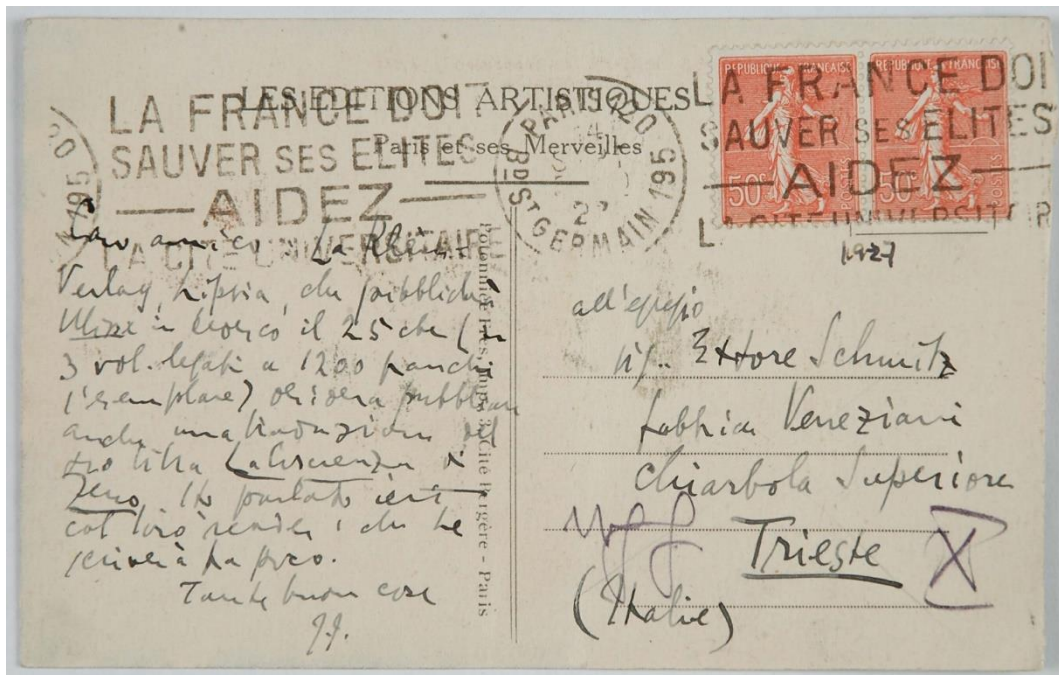 LES EDITIONS ARTISTIQUES
Paris et ses Merveilles
LA FRANCE DOIT
SAUVER SES ELITES
AIDEZ
LA CITE UNIVERSITAIRE
PARIS 120
Bd St GERMAIN 195
LA FRANCE DOI
SAUVER SES ELITES
AIDEZ
LA CITE UNIVERSITAIR
REPUBLIQUE FRANÇAISE
50c
POSTES
REPUBLIQUE FRANÇAISE
50c
POSTES
1927
Caro amico: La Rhein
Verlag, Lipsia, che pubblicherà
Ulisse in tedesco il 25 cte (in
3 vol. legati a 1200 franchi
l'esemplare) desidera pubblicare
anche una traduzione del
suo libro La Coscienza di
Zeno. Ho parlato ieri
col loro render; che Le
scriverà fra poco.
Tante buone cose
J.J.
all'egregio
sig. Ettore Schmitz
fabbrica Veneziani
Chiarbola Superiore
Trieste
(Italie)
X
Cité Bergère - Paris